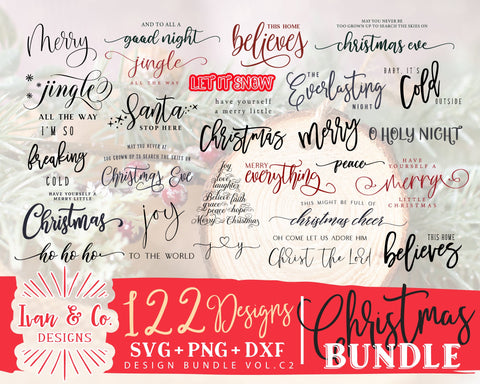 Merry
AND TO ALL A
good night
THIS HOME
believes
MAY YOU NEVER BE
TOO GROWN UP TO SEARCH THE SKIES ON
christmas eve
jingle
ALL THE WAY
jingle
ALL THE WAY
LET IT SNOW
THE
Everlasting
NIGHT
BABY, IT'S
Cold
OUTSIDE
Santa
STOP HERE
have yourself
a merry little
Christmas
merry
O HOLY NIGHT
I'M SO
breaking
COLD
MAY YOU NEVER BE
TOO GROWN UP TO SEARCH THE SKIES ON
Christmas Eve
Joy
love
laughter
Believe faith
grace bless
peace hope
Merry Christmas
MERRY
everything
peace
HAVE YOURSELF A
merry
LITTLE
CHRISTMAS
HAVE YOURSELF A
MERRY LITTLE
Christmas
joy
TO THE WORLD
THIS MIGHT BE FULL OF
christmas cheer
ho ho ho
j y
OH COME LET US ADORE HIM
Christ The Lord
THIS HOME
believes
Ivan & Co.
DESIGNS
122 Designs
SVG + PNG + DXF
DESIGN BUNDLE VOL.C2
Christmas
BUNDLE